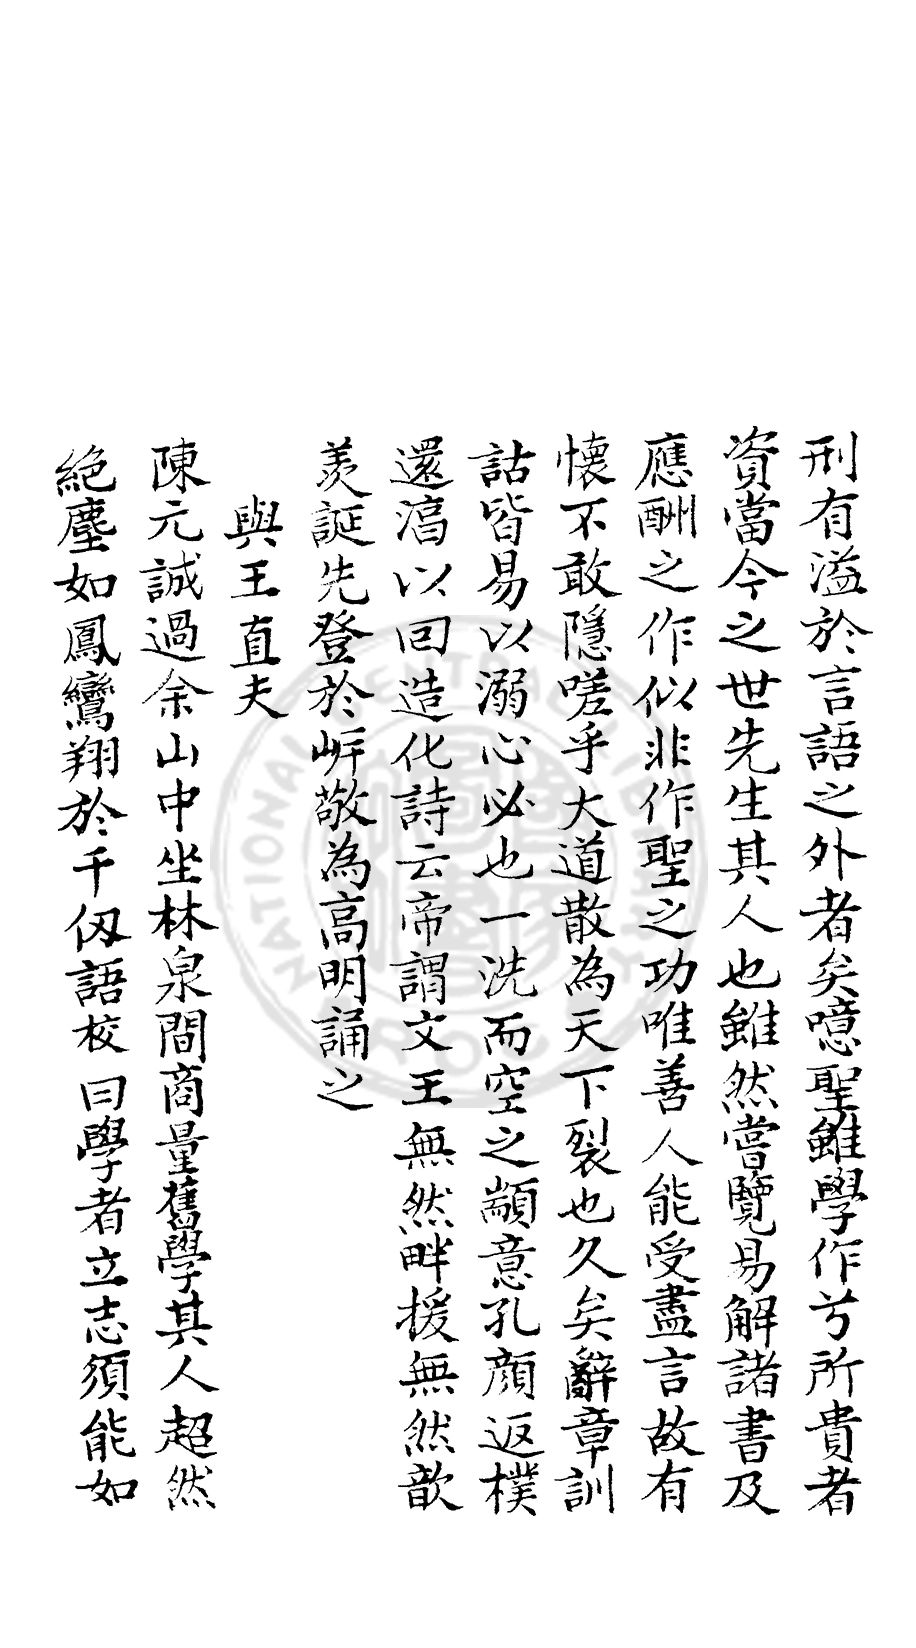 刑有溢於言語之外者矣噫聖雖學作兮所貴者
資當今之世先生其人也雖然嘗覽易解諸書及
應酬之作似非作聖之功唯善人能受盡言故有
懷不敢隱嗟乎大道散為天下裂也久矣辭章訓
詁皆易以溺心必也一洗而空之顓意孔顏返樸
還淳以回造化詩云帝謂文王無然畔援無然歆
羨誕先登於岸敬為高明誦之
與王直夫
陳元誠過余山中坐林泉間商量舊學其人超然
絕塵如鳳鸞翔於千仭語校曰學者立志須能如
NATIONAL CENTRAL LIBRARY